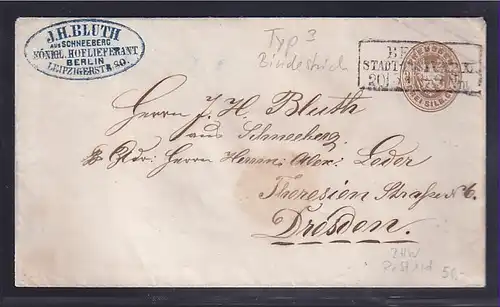 J.H. BLUTH
AUS SCHNEEBERG
KÖNIGL. HOFLIEFERANT
BERLIN
LEIPZIGERSTR. 80.
Typ 3
Bindestrich
BE
STADT
20
PREUSSEN
DREI SILB. GR.
Herrn J. H. Bluth
aus Schneeberg
Adr: Herrn Herrm: Alex: Loder
Theresien Straße 6.
Dresden.
50,-